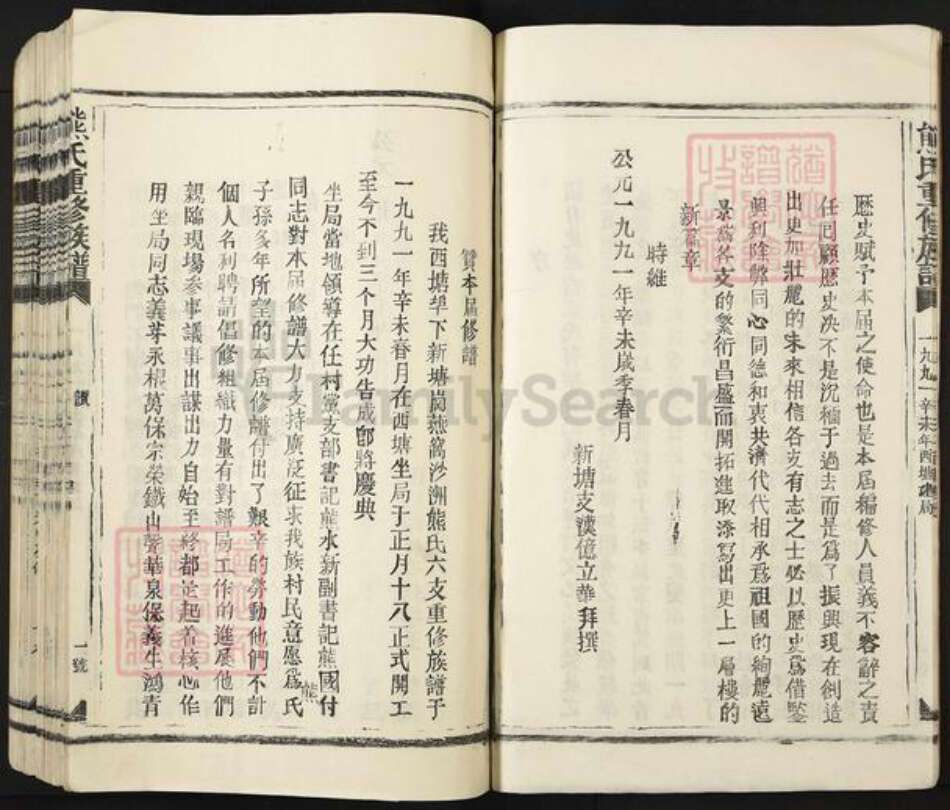 熊氏重修族譜
一九九一辛未年西塘
歷史賦予本屆之使命也是本屆編修人員義不容辭之責
任回顧歷史决不是沉緬于過去而是爲了振興現在創造
出更加壯麗的未來相信各支有志之士必以歷史爲借鑒
興利除弊同心同德和衷共濟代代相承爲祖國的絢麗遠
景爲各支的繁衍昌盛而開拓進取添寫出更上一層樓的
新篇章
時維
公元一九九一年辛未歲季春月
新塘支漢億立華拜撰
贊本屆修譜
我西塘垾下新塘崗燕窩沙洲熊氏六支重修族譜于
一九九一年辛未春月在西塘坐局于正月十八正式開工
至今不到三个月大功告成卽將慶典
坐局當地領導在任村黨支部書記熊水新副書記熊國付
同志對本屆修譜大力支持廣泛征求我族村民意愿爲熊氏
子孫多年所望的本屆修譜付出了艱辛的勞動他們不計
個人名利聘請倡修組織力量有對譜局工作的進展他們
親臨現場參事議事出謀出力自始至終都迠起着核心作
用坐局同志義芽永根萬保宗榮鐵山聲華泉保義生鴻青
熊氏重修族譜
一號
FamilySearch